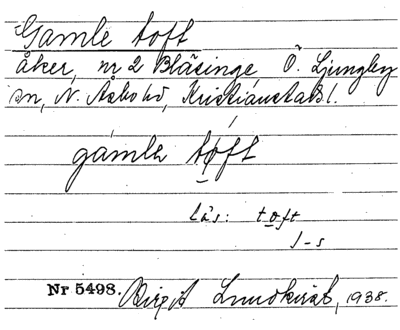 Gamle toft
åker, nr 2 Bläsinge, Ö. Ljungby
sn, N. Åsbo hd, Kristianstads l.
gámle tóft
läs: toft
1-s
Nr 5498. Birgit Lundkvist, 1938.